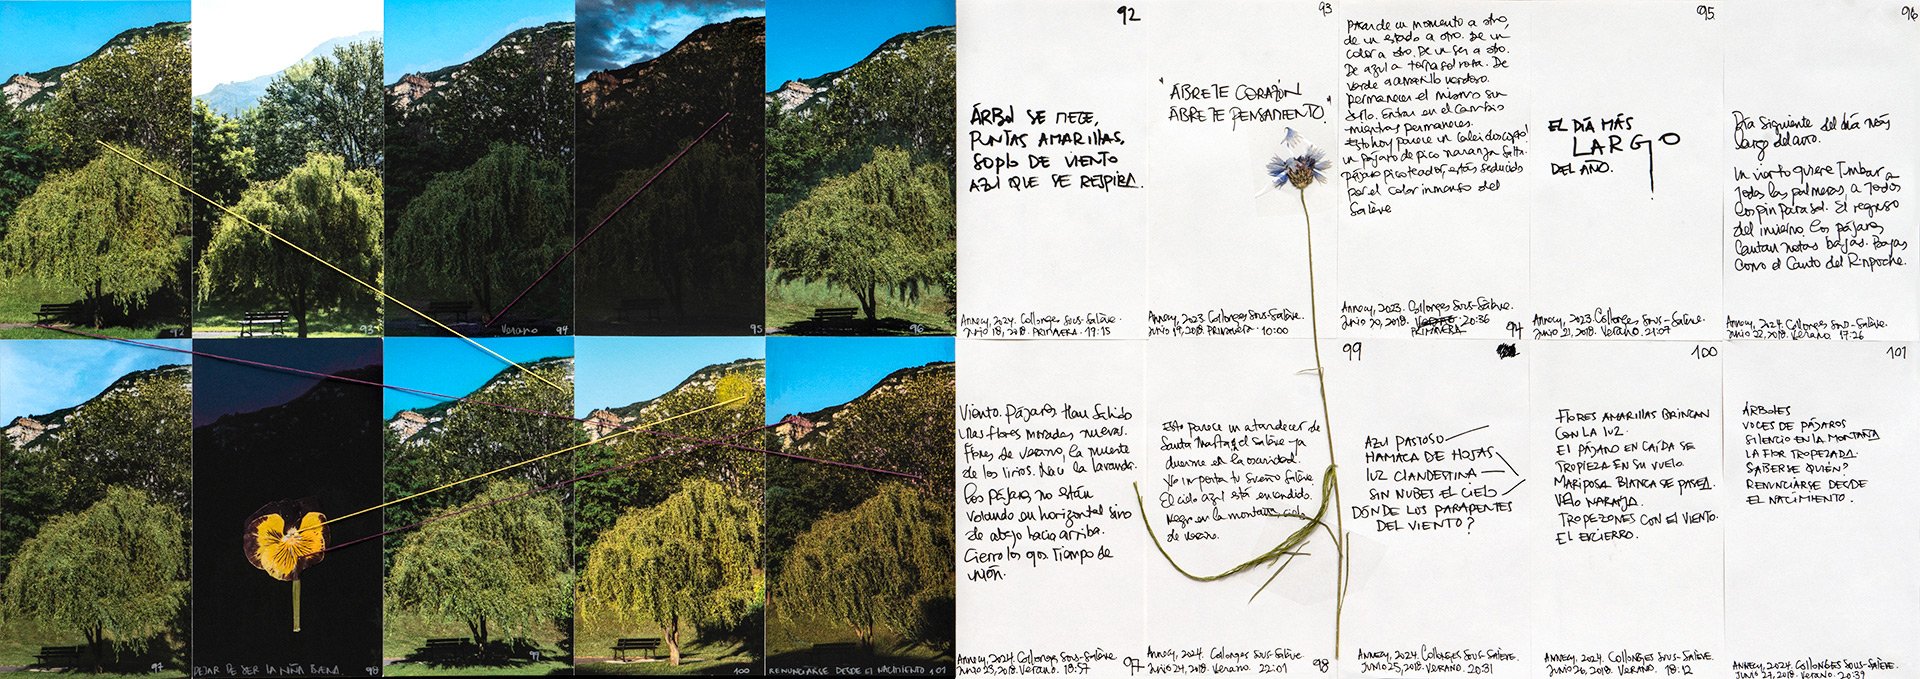 92
93
Verano 94
95
96
97
DEJAR DE SER LA NIÑA BUENA. 98
99
100
RENUNCIARSE DESDE EL NACIMIENTO 101
92
ÁRBOL SE MECE,
PUNTAS AMARILLAS,
SOPLO DE VIENTO
AZUL QUE SE RESPIRA.
Annecy, 2024. Collonges Sous-Salève.
Junio 18, 2018. PRIMAVERA. 17:15
93
"ÁBRETE CORAZÓN
ÁBRETE PENSAMIENTO."
Annecy, 2023. Collonges Sous-Salève.
Junio 19, 2018. PRIMAVERA. 10:00
Pasar de un momento a otro,
de un estado a otro. De un
color a otro. De un ser a otro.
De azul a tornasol rosa. De
verde a amarillo verdoso.
permanecer el mismo sin
serlo. Entrar en el cambio
mientras permaneces.
Esto hoy parece un caleidoscopio!
un pájaro de pico naranja salta.
pájaro picoteador, estás seducido
por el color inmenso del
Salève
Annecy, 2023. Collonges Sous-Salève.
Junio 20, 2018. 20:36
PRIMAVERA 94
95
EL DÍA MÁS
LARGO
DEL AÑO.
Annecy, 2023. Collonges Sous-Salève.
Junio 21, 2018. Verano. 21:07
96
Día siguiente del día más
largo del año.
Un viento quiere tumbar a
todas las palmeras, a todos
los pin parasol. El regreso
del invierno. Los pájaros
cantan notas bajas. Bajas
como el Canto del Rinpoche.
Annecy, 2024. Collonges Sous-Salève.
Junio 22, 2018. Verano. 17:26
Viento. Pájaros. Han salido
unas flores moradas nuevas.
Flores de verano, la muerte
de los lirios. Nace la lavanda.
Los pájaros no están
volando en horizontal sino
de abajo hacia arriba.
Cierro los ojos Tiempo de
unión.
Annecy, 2024. Collonges Sous-Salève.
Junio 23, 2018. Verano. 18:57 97
Esto parece un atardecer de
Santa Marta, el Salève ya
duerme en la oscuridad.
No importa tu sueño Salève
El cielo azul está encendido.
Negro en la montaña, cielo
de verano.
Annecy, 2024. Collonges Sous-Salève.
Junio 24, 2018. Verano. 22:01 98
99
AZUL PASTOSO
HAMACA DE HOJAS
LUZ CLANDESTINA
SIN NUBES EL CIELO
DÓNDE LOS PARAPENTES
DEL VIENTO?
Annecy, 2024. Collonges Sous-Salève.
JUNIO 25, 2018. VERANO. 20:31
100
FLORES AMARILLAS BRINCAN
CON LA LUZ.
EL PÁJARO EN CAÍDA SE
TROPIEZA EN SU VUELO.
MARIPOSA BLANCA SE PASEA.
VELO NARANJA.
TROPEZONES CON EL VIENTO.
EL ENCIERRO.
Annecy, 2024. Collonges Sous-Salève.
Junio 26, 2018. Verano. 18:12
101
ÁRBOLES
VOCES DE PÁJAROS
SILENCIO EN LA MONTAÑA
LA FLOR TROPEZADA.
SABERSE QUIÉN?
RENUNCIARSE DESDE
EL NACIMIENTO.
Annecy, 2024. COLLONGES SOUS-SALÈVE.
JUNIO 27, 2018. VERANO. 20:39